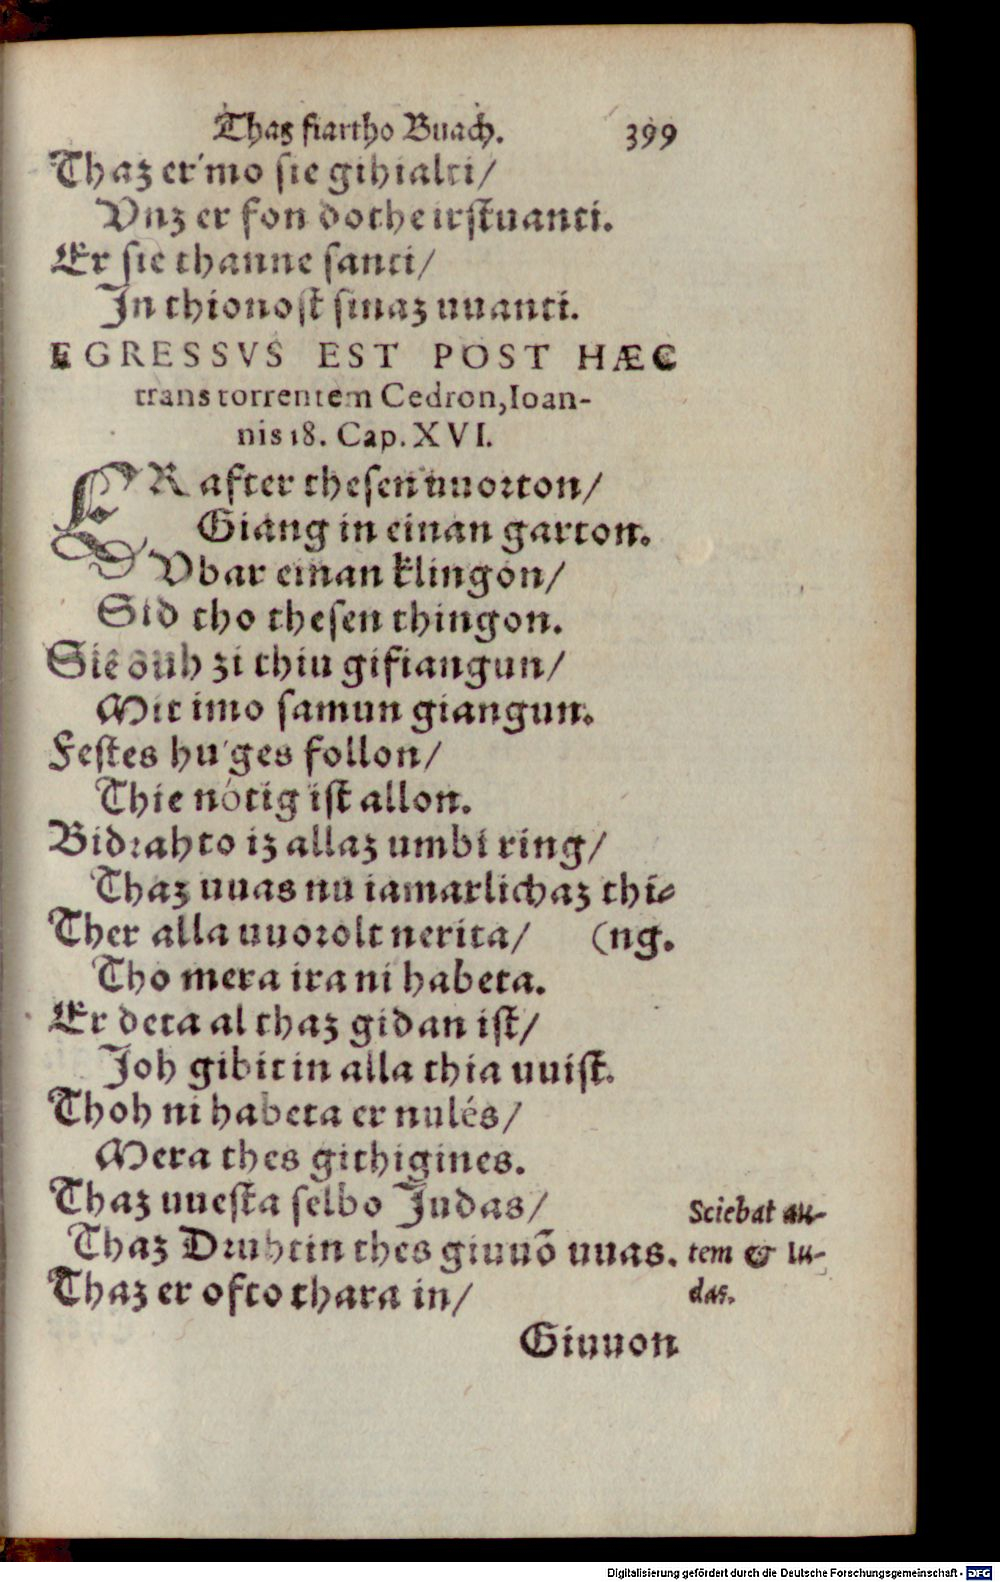 Thaz fiartho Buach. 399
Thaz er'mo sie gihialti/
Vnz er fon dothe irstuanti.
Er sie thanne santi/
In thionost sinaz uuanti.
EGRESSVS EST POST HÆC
trans torrentem Cedron, Ioan-
nis 18. Cap. XVI.
ER after thesen uuorton/
Giang in einan garton.
Vbar einan klingon/
Sid tho thesen thingon.
Sie ouh zi thiu gifiangun/
Mit imo samun giangun.
Festes hu'ges follon/
Thie nótig ist allon.
Bidrahto iz allaz umbi ring/
Thaz uuas nu iamarlichaz thi-
Ther alla uuorolt nerita/ (ng.
Tho mera ira ni habeta.
Er deta al thaz gidan ist/
Joh gibit in alla thia uuist.
Thoh ni habeta er nulés/
Mera thes githigines.
Thaz uuesta selbo Judas/
Thaz Druhtin thes giuuõ uuas.
Thaz er ofto thara in/
Sciebat au-
tem & Iu-
das.
Giuuon
Digitalisierung gefördert durch die Deutsche Forschungsgemeinschaft - DFG